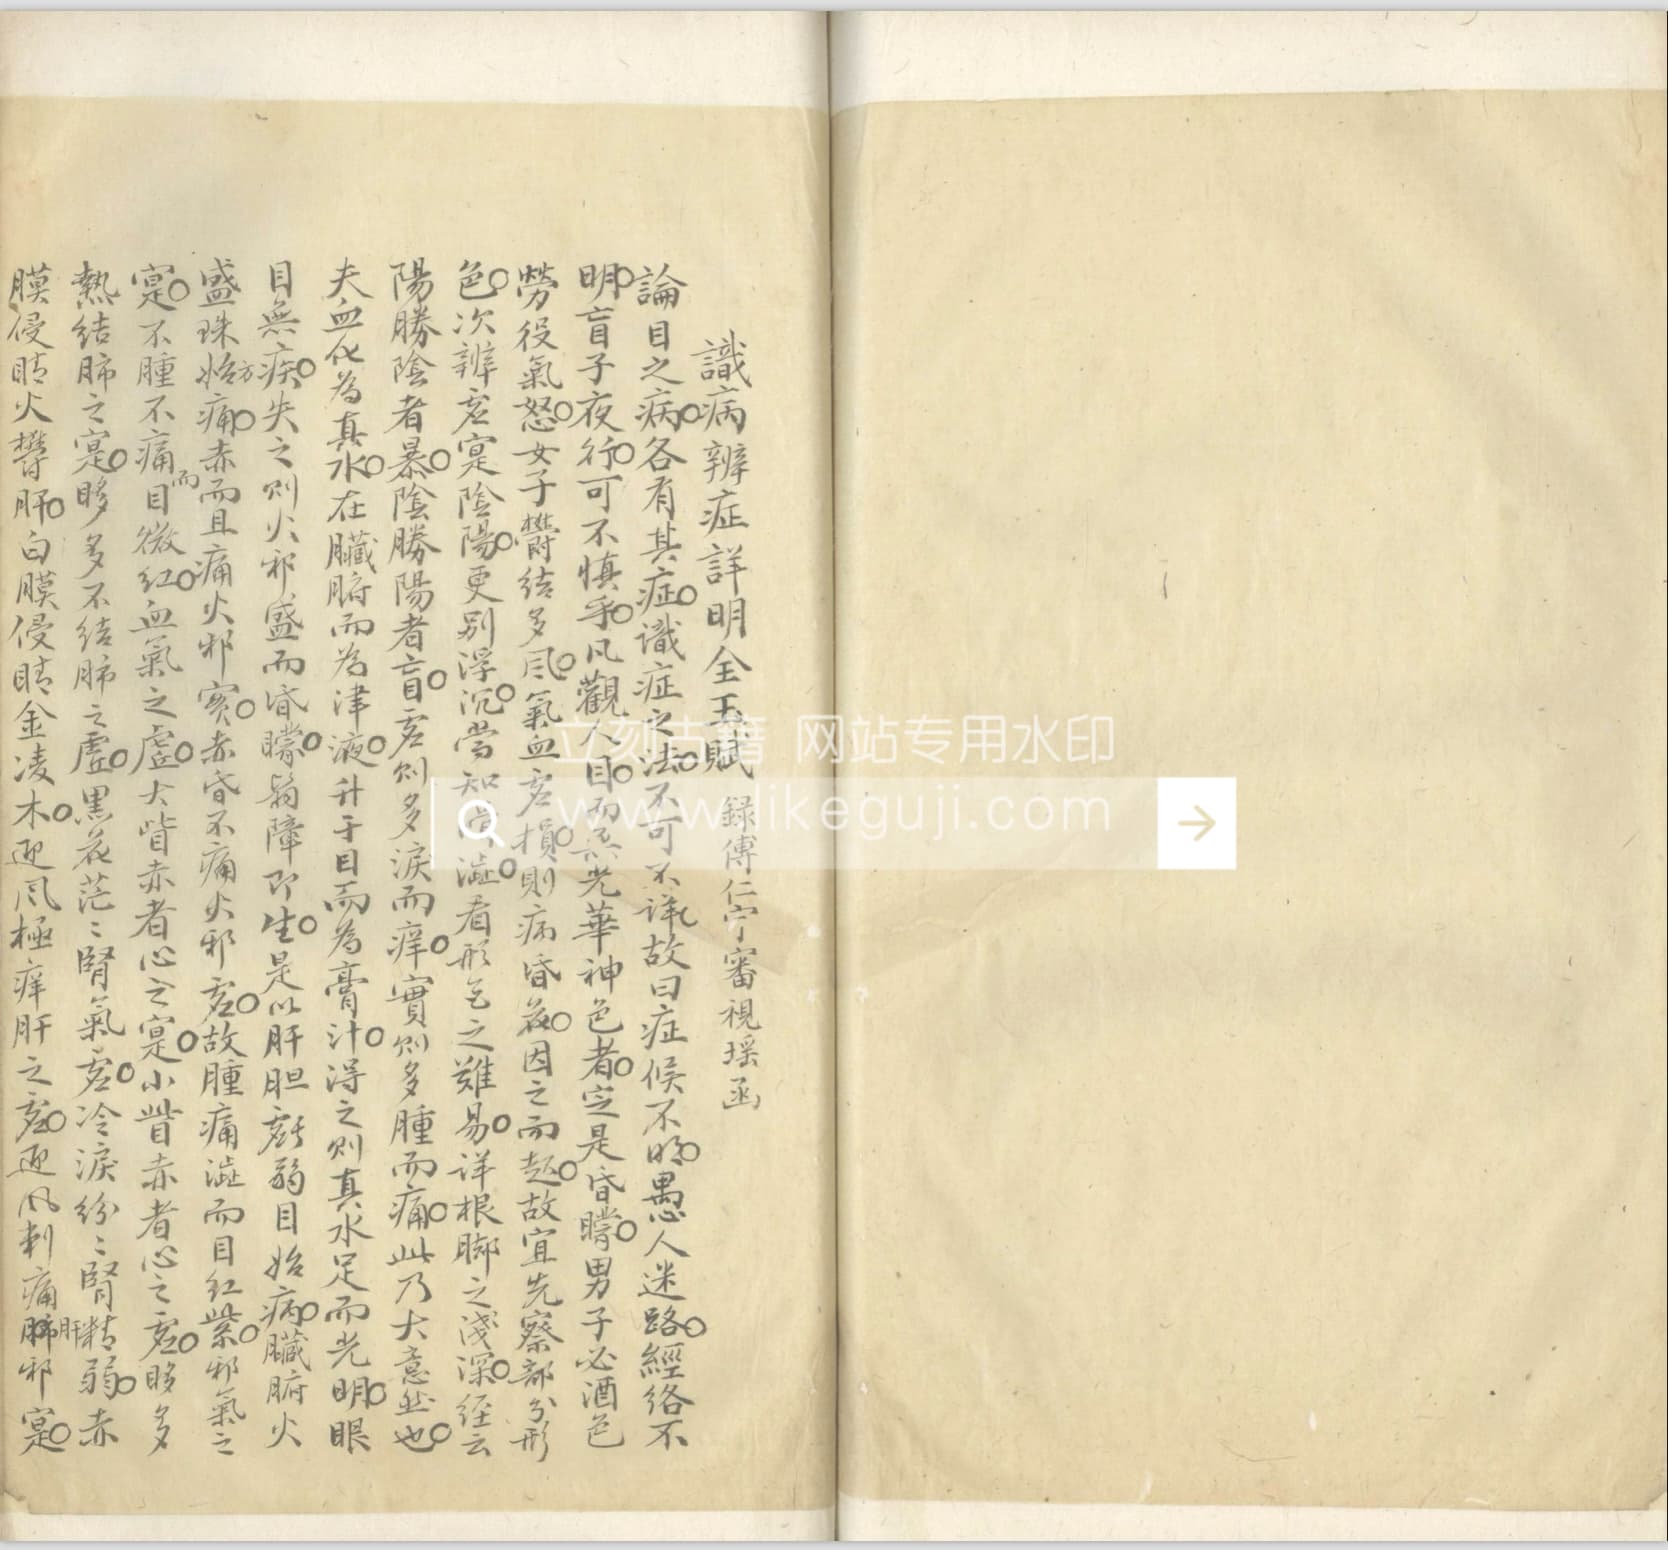 識病辨症詳明全玉賦 録傅仁宇審視瑶函
論目之病○各有其症○識症之法○不可不詳故曰症候不明○愚人迷路○經絡不
明○盲子夜行○可不慎乎○凡觀人目○而無光華神色者○定是昏矇○男子必酒色
勞役氣怒○女子欝結多風○氣血虗損○則病昏花○因之而起○故宜先察部分形
色○次辨虗寔陰陽○更别浮沉○當知滑澁○看形色之難易○詳根脚之淺深○經云
陽勝陰者暴○陰勝陽者盲○虗则多淚而痒○實则多腫而痛○此乃大意然也○
夫血化為真水○在臟腑而為津液○升于目而為膏汁○得之则真水足而光明○眼
目無疾○失之则火邪盛而昏矇○翳障即生○是以肝胆虧弱目始病○臟腑火
盛珠始方痛○赤而且痛火邪實○赤昏不痛火邪虗○故腫痛澁而目红紫○邪氣之
寔○不腫不痛而目微红○血氣之虗○大眥赤者心之寔○小眥赤者心之虗○眵多
熱結肺之寔○眵多不结肺之虛○黒花茫〻腎氣虗○冷淚纷〻腎精弱○赤
膜侵睛火欝肝○白膜侵睛金凌木○迎風極痒肝之虗○迎风刺痛肝邪寔○
立刻古籍 网站专用水印
www.likeguji.com